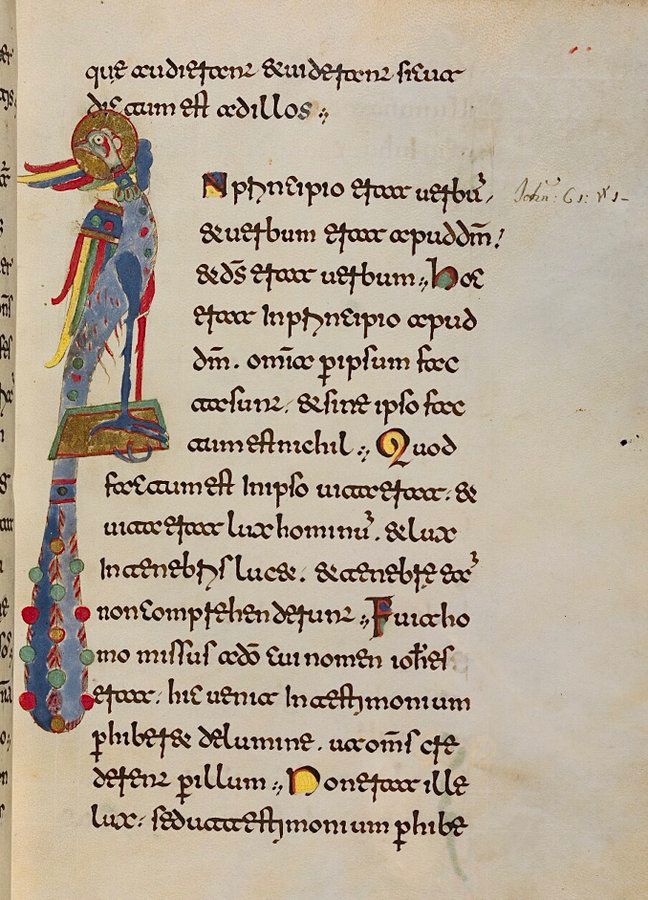 que audierant & viderant sicut
dictum est ad illos:,
IN principio erat verbũ,
& verbum erat apud dm̃.
& ds̃ erat verbum:, hoc
erat In principio apud
dm̃. omĩa p̱ ipsum fac
ta sunt. & sine ipso fac
tum est nichil:, Quod
factum est In ipso vita erat. &
vita erat lux hominũ. & lux
In tenebris luc&. & tenebre eã
non comprehenderunt:, Fuit ho
mo missus a dõ cui nomen ioh̃es.
erat. hic venit In testimonium
p̱hiber& de lumine. ut om̃s cre
derent p̱ illum:, Non erat ille
lux. sed ut testimonium p̱hibe
John: C 1: v 1-